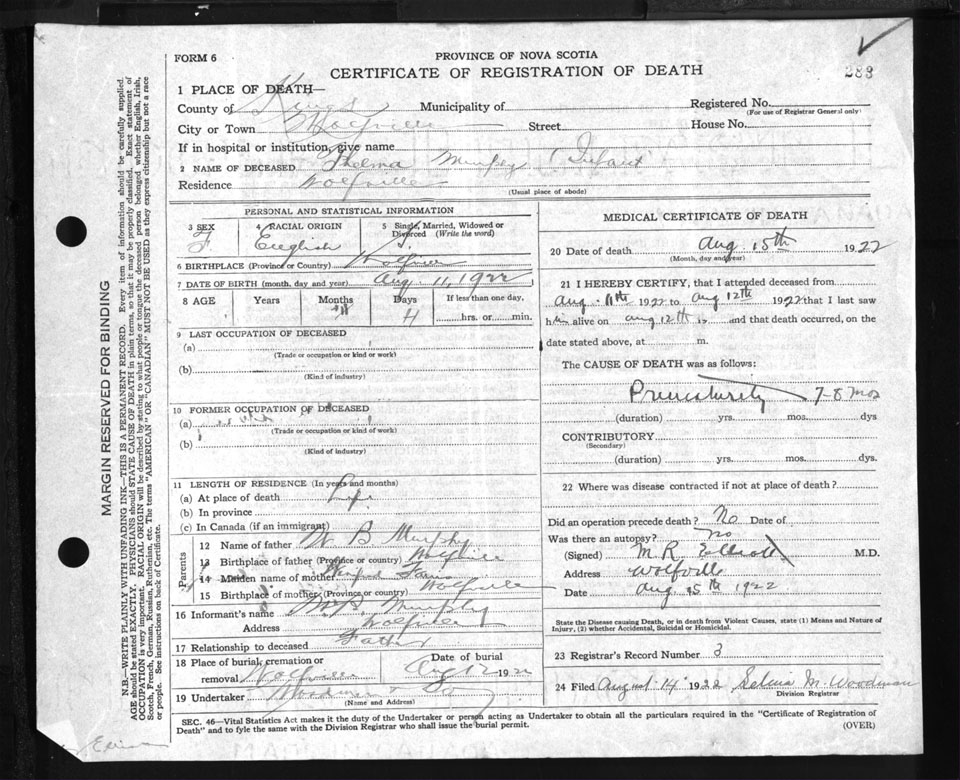 FORM 6
PROVINCE OF NOVA SCOTIA
CERTIFICATE OF REGISTRATION OF DEATH
283
1 PLACE OF DEATH—
County of Kings Municipality of Registered No.
(For use of Registrar General only)
City or Town Wolfville Street House No.
If in hospital or institution, give name
2 NAME OF DECEASED Thelma Murphy (Infant)
Residence Wolfville
(Usual place of abode)
PERSONAL AND STATISTICAL INFORMATION
3 SEX 4 RACIAL ORIGIN 5 Single, Married, Widowed or Divorced (Write the word)
F. English S.
6 BIRTHPLACE (Province or Country) Wolfville
7 DATE OF BIRTH (month, day and year) Aug. 11, 1922
8 AGE Years Months Days If less than one day,
4 hrs. or min.
9 LAST OCCUPATION OF DECEASED
(a)
(Trade or occupation or kind of work)
(b)
(Kind of industry)
10 FORMER OCCUPATION OF DECEASED
(a)
(Trade or occupation or kind of work)
(b)
(Kind of industry)
11 LENGTH OF RESIDENCE (In years and months)
(a) At place of death Life
(b) In province
(c) In Canada (if an immigrant)
Parents
12 Name of father W B Murphy
13 Birthplace of father (Province or country) Wolfville
14 Maiden name of mother
15 Birthplace of mother (Province or country) Wolfville
16 Informant's name W.B. Murphy
Address Wolfville
17 Relationship to deceased Father
18 Place of burial, cremation or removal Wolfville Date of burial Aug 12 1922
19 Undertaker Woodman &
(Name and Address)
MEDICAL CERTIFICATE OF DEATH
20 Date of death Aug. 15th 1922
(Month, day and year)
21 I HEREBY CERTIFY, that I attended deceased from
Aug. 11th 1922 to Aug 12th 1922 that I last saw
him alive on Aug 12th and that death occurred, on the
date stated above, at m.
The CAUSE OF DEATH was as follows:
Prematurity 7-8 mos
(duration) yrs. mos. dys
CONTRIBUTORY
(Secondary)
(duration) yrs. mos. dys.
22 Where was disease contracted if not at place of death?
Did an operation precede death? No Date of
Was there an autopsy? No
(Signed) M. R. Elliott M.D.
Address Wolfville
Date Aug 15th 1922
State the Disease causing Death, or in death from Violent Causes, state (1) Means and Nature of
Injury, (2) whether Accidental, Suicidal or Homicidal.
23 Registrar's Record Number 3
24 Filed August 14 1922 Selina M. Woodman
Division Registrar
SEC. 46—Vital Statistics Act makes it the duty of the Undertaker or person acting as Undertaker to obtain all the particulars required in the "Certificate of Registration of
Death" and to fyle the same with the Division Registrar who shall issue the burial permit.
(OVER)
MARGIN RESERVED FOR BINDING
N.B.—WRITE PLAINLY WITH UNFADING INK—THIS IS A PERMANENT RECORD. Every item of information should be carefully supplied.
AGE should be stated EXACTLY. PHYSICIANS should STATE CAUSE OF DEATH in plain terms, so that it may be properly classified. Exact statement of
OCCUPATION is very important. RACIAL ORIGIN will be described by stating to what people or tongue the deceased person belonged whether English, Irish,
Scotch, French, German, Russian, Ruthenian, etc. The terms "AMERICAN" or "CANADIAN" MUST NOT BE USED as they express citizenship but not a race
or people. See instructions on back of Certificate.